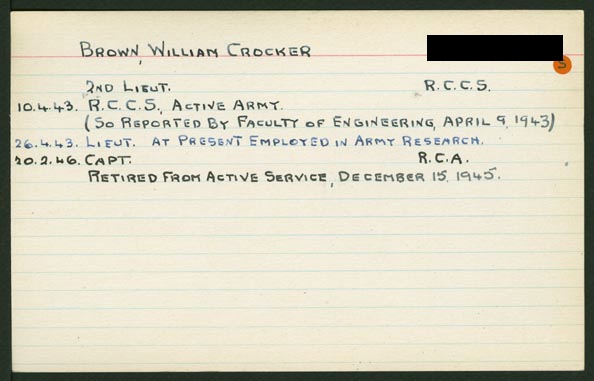 BROWN, WILLIAM CROCKER
S
2ND LIEUT. R.C.C.S.
10.4.43. R.C.C.S., ACTIVE ARMY.
(SO REPORTED BY FACULTY OF ENGINEERING, APRIL 9, 1943)
26.4.43. LIEUT. AT PRESENT EMPLOYED IN ARMY RESEARCH.
20.2.46. CAPT. R.C.A.
RETIRED FROM ACTIVE SERVICE, DECEMBER 15, 1945.